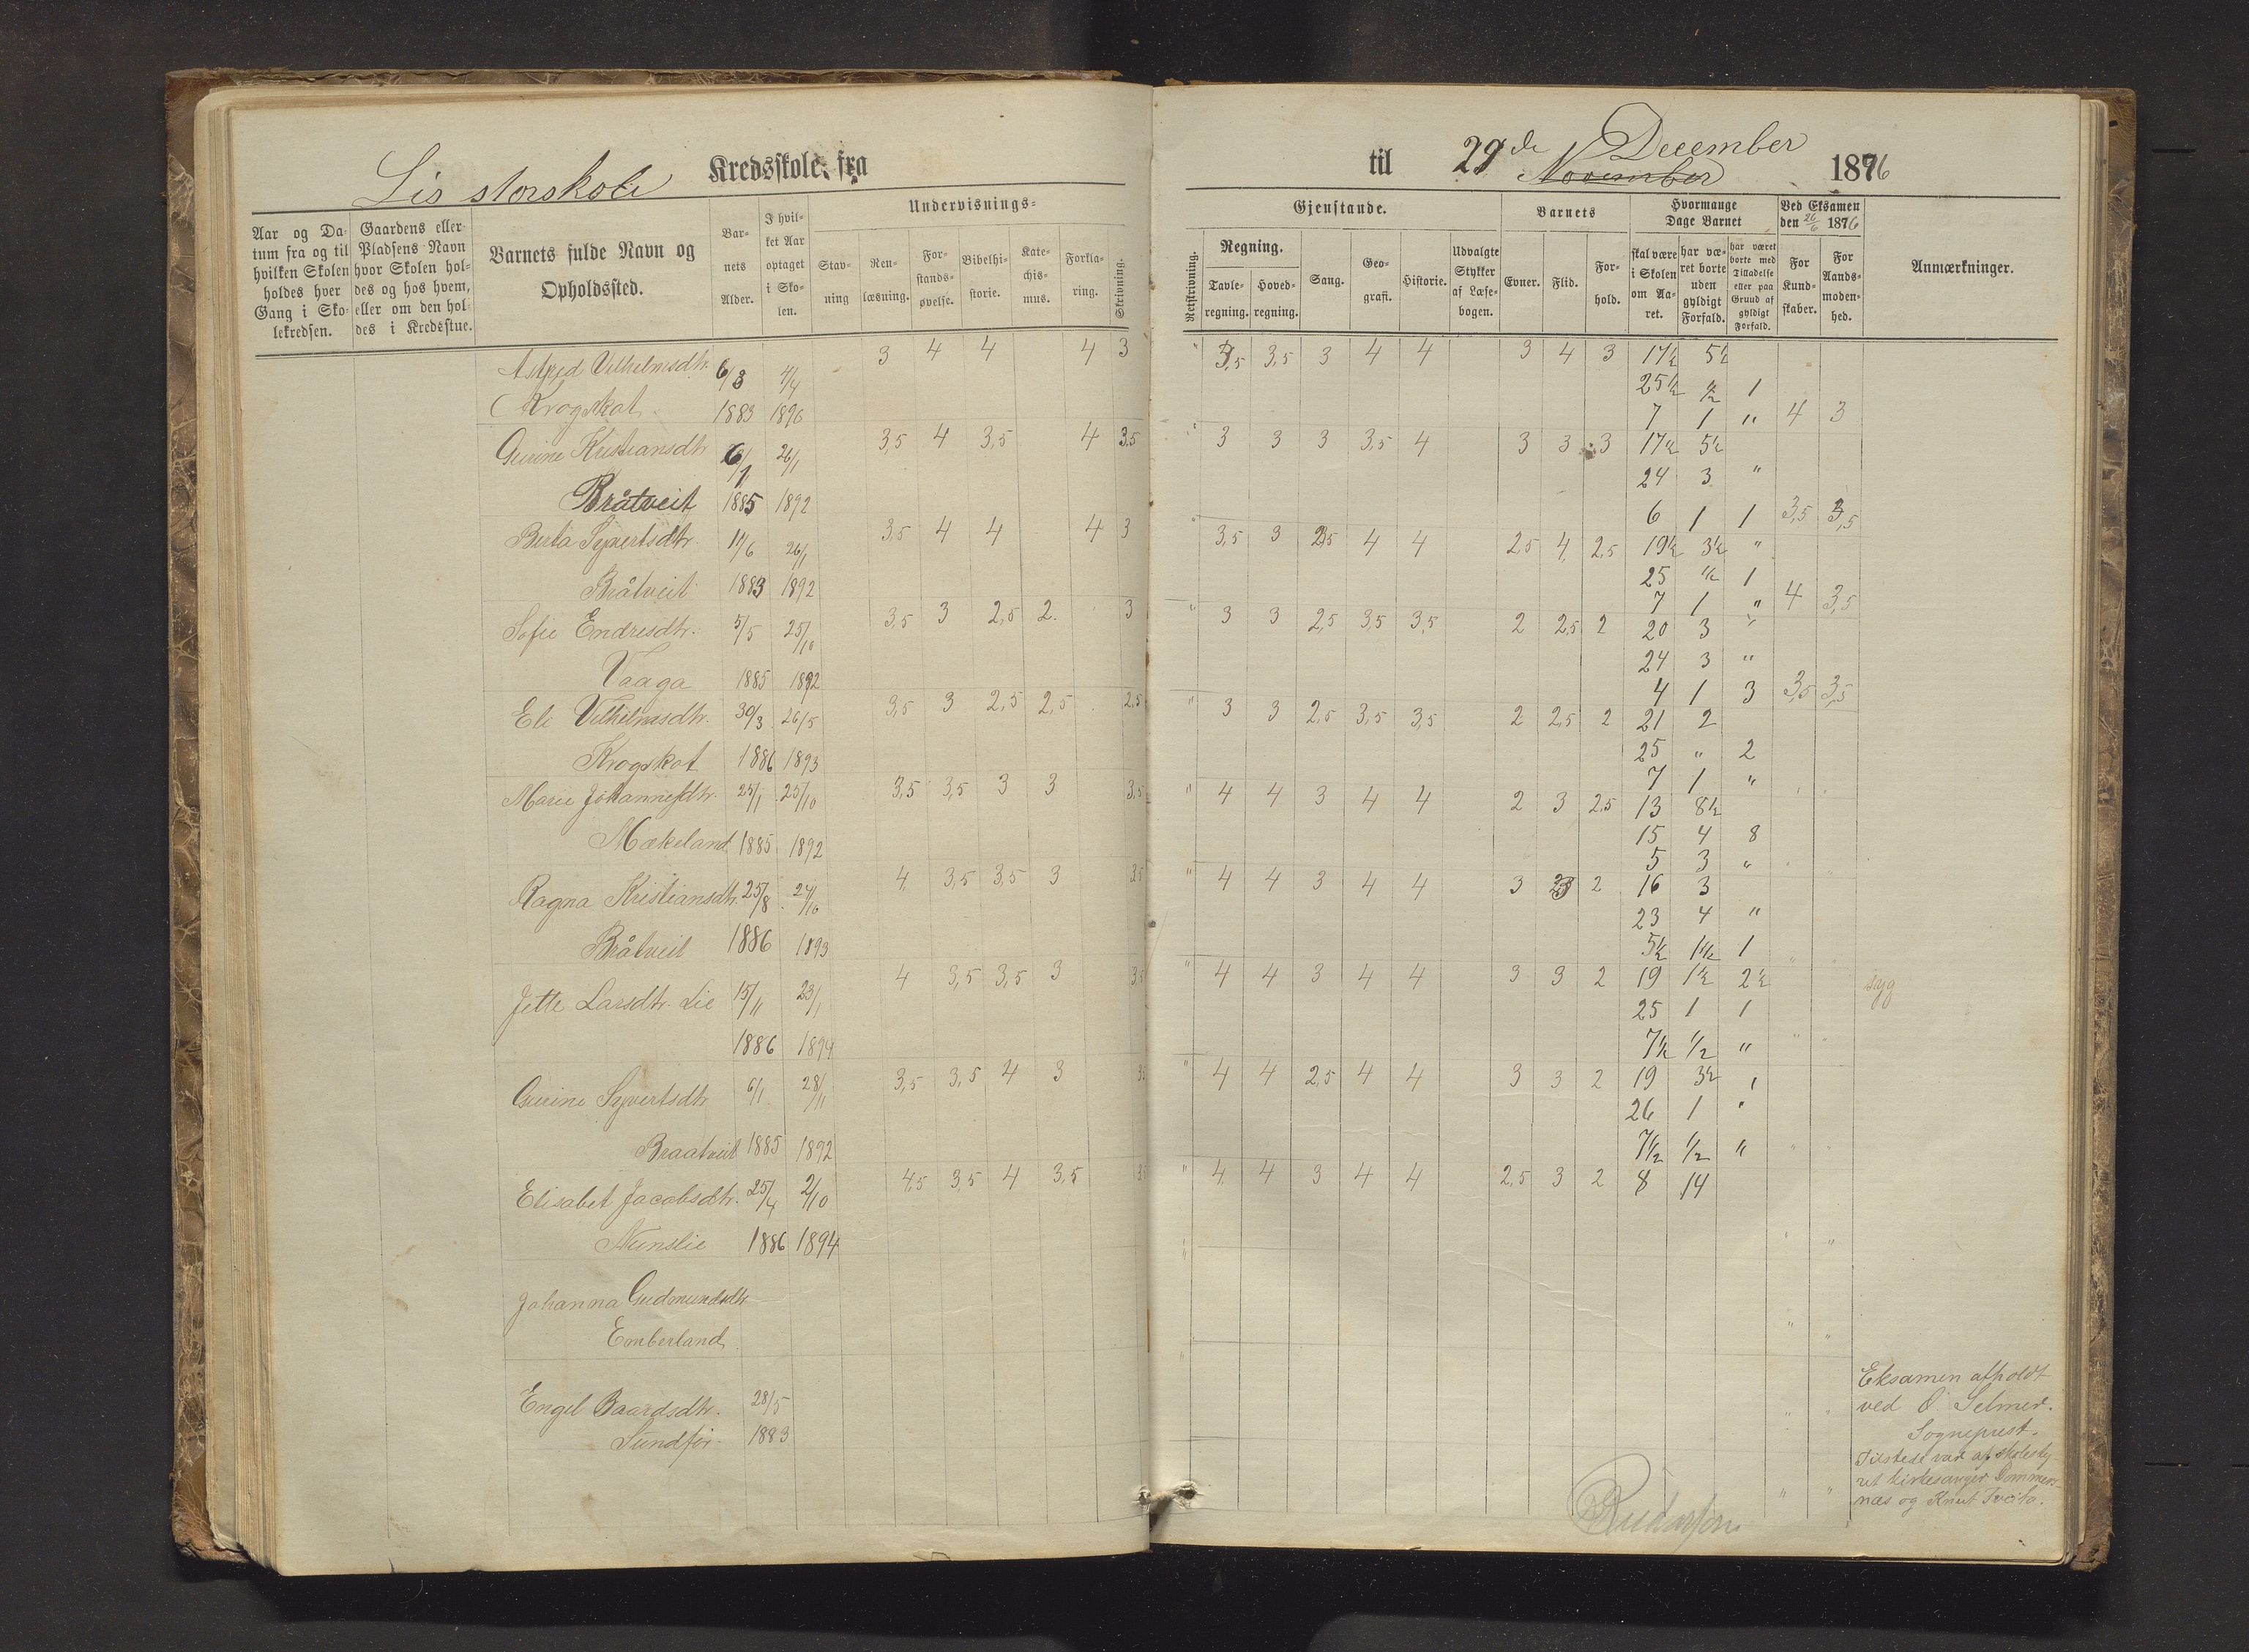 Lis storskole Kredsskole fra
til 29de December
November 1896
Undervisnings-
Gjenstande.
Barnets
Hvormange Dage Barnet
Ved Eksamen den 26/6 1876
Aar og Da-
tum fra og til
hvilken Skolen
holdes hver
Gang i Sko-
lekredsen.
Gaardens eller
Pladsens Navn
hvor Skolen hol-
des og hos hvem,
eller om den hol-
des i Kredsstue.
Barnets fulde Navn og
Opholdssted.
Bar-
nets
Alder.
I hvil-
ket Aar
optaget
i Sko-
len.
Stav-
ning
Ren-
læsning.
For-
stands-
øvelse.
Bibelhi-
storie.
Kate-
chis-
mus.
Forkla-
ring.
Skrivning.
Retskrivning.
Regning.
Tavle-
regning.
Hoved-
regning.
Sang.
Geo-
grafi.
Historie.
Udvalgte
Stykker
af Læse-
bogen.
Evner.
Flid.
For-
hold.
skal være
i Skolen
om Aa-
ret.
har væ-
ret borte
uden
gyldigt
Forfald.
har været
borte med
Tilladelse
eller paa
Grund af
gyldigt
Forfald.
For
Kund-
skaber.
For
Aands-
moden-
hed.
Anmærkninger.
Astrid Vilhelmsdtr. 6/3 4/4 3 4 4 4 3 " 3,5 3,5 3 4 4 3 4 3 17½ 5½
25½ ½ 1
Krogskot 1883 1890 7 1 " 4 3
Gurine Kristiansdtr 6/1 26/1 3,5 4 3,5 4 3,5 " 3 3 3 3,5 4 3 3 3 17½ 5½
24 3 "
Bråtveit 1885 1892 6 1 1 3,5 3,5
Berta Syvertsdtr. 11/6 26/1 3,5 4 4 4 3 " 3,5 3 2,5 4 4 2,5 4 2,5 19½ 3½ "
25 ½ 1
Bråtveit 1883 1892 7 1 " 4 3,5
Sofie Endresdtr. 5/5 25/10 3,5 3 2,5 2 3 " 3 3 2,5 3,5 3,5 2 2,5 2 20 3 "
24 3 "
Vaaga 1885 1892 4 1 3 3,5 3,5
Eli Vilhelmsdtr. 30/3 26/5 3,5 3 2,5 2,5 2,5 " 3 3 2,5 3,5 3,5 2 2,5 2 21 2
25 " 2
Krogskot 1886 1893 7 1 "
Marie Johannesdtr. 25/1 25/10 3,5 3,5 3 3 3,5 " 4 4 3 4 4 2 3 2,5 13 8½
15 4 8
Mækeland 1885 1892 5 3 "
Ragna Kristiansdtr. 25/8 24/10 4 3,5 3,5 3 3,5 " 4 4 3 4 4 3 3 2 16 3
23 4 "
Bråtveit 1886 1893 5½ 1½ 1
Jette Larsdtr. Lie 15/11 23/1 4 3,5 3,5 3 3,5 " 4 4 3 4 4 3 3 2 19 1½ 2½ syg
25 1 1
1886 1894 7½ ½ "
Gurine Syvertsdtr 6/1 28/11 3,5 3,5 4 3 3,5 " 4 4 2,5 4 4 3 3 2 19 3½ "
26 1 "
Braatveit 1885 1892 7½ ½ "
Elisabet Jacobsdtr. 25/4 2/10 4,5 3,5 4 3,5 3,5 " 4 4 3 4 4 2,5 3 2 8 14
Nunslie 1886 1894
Johanna Gudmundsdtr
Emberland
Engel Baardsdtr. 28/5
Sundfør 1883
Eksamen afholdt
ved O. Selmer.
Sogneprest.
Tilstede var af skolesty-
ret kirkesanger Dommers-
næs og Knut Tveita.